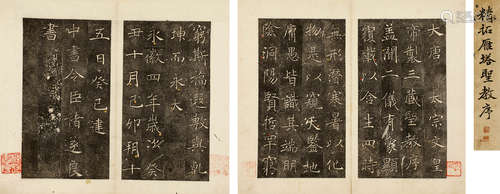 精拓雁塔聖教序
大唐太宗文皇
帝製三藏聖教序
盖聞二儀有象顯
覆載以含生四時
無形潛寒暑以化
物是以窺天鑒地
庸愚皆識其端明
陰洞陽賢哲罕窮
窮斯福遐敷與乾
坤而永大
永徽四年歲次癸
丑十月己卯朔十
五日癸巳建
中書令臣褚遂良
書